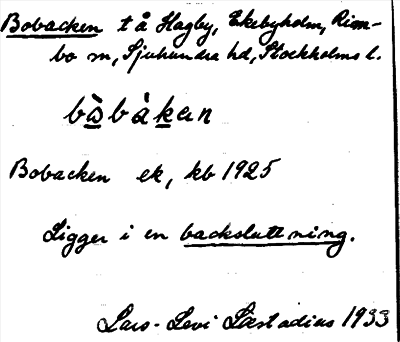 Bobacken t å Hagby, Ekebyholm, Rim-
bo sn, Sjuhundra hd, Stockholms l.
bò̲bàk̲an
Bobacken ek, kb 1925
Ligger i en backsluttning.
Lars-Levi Læstadius 1933